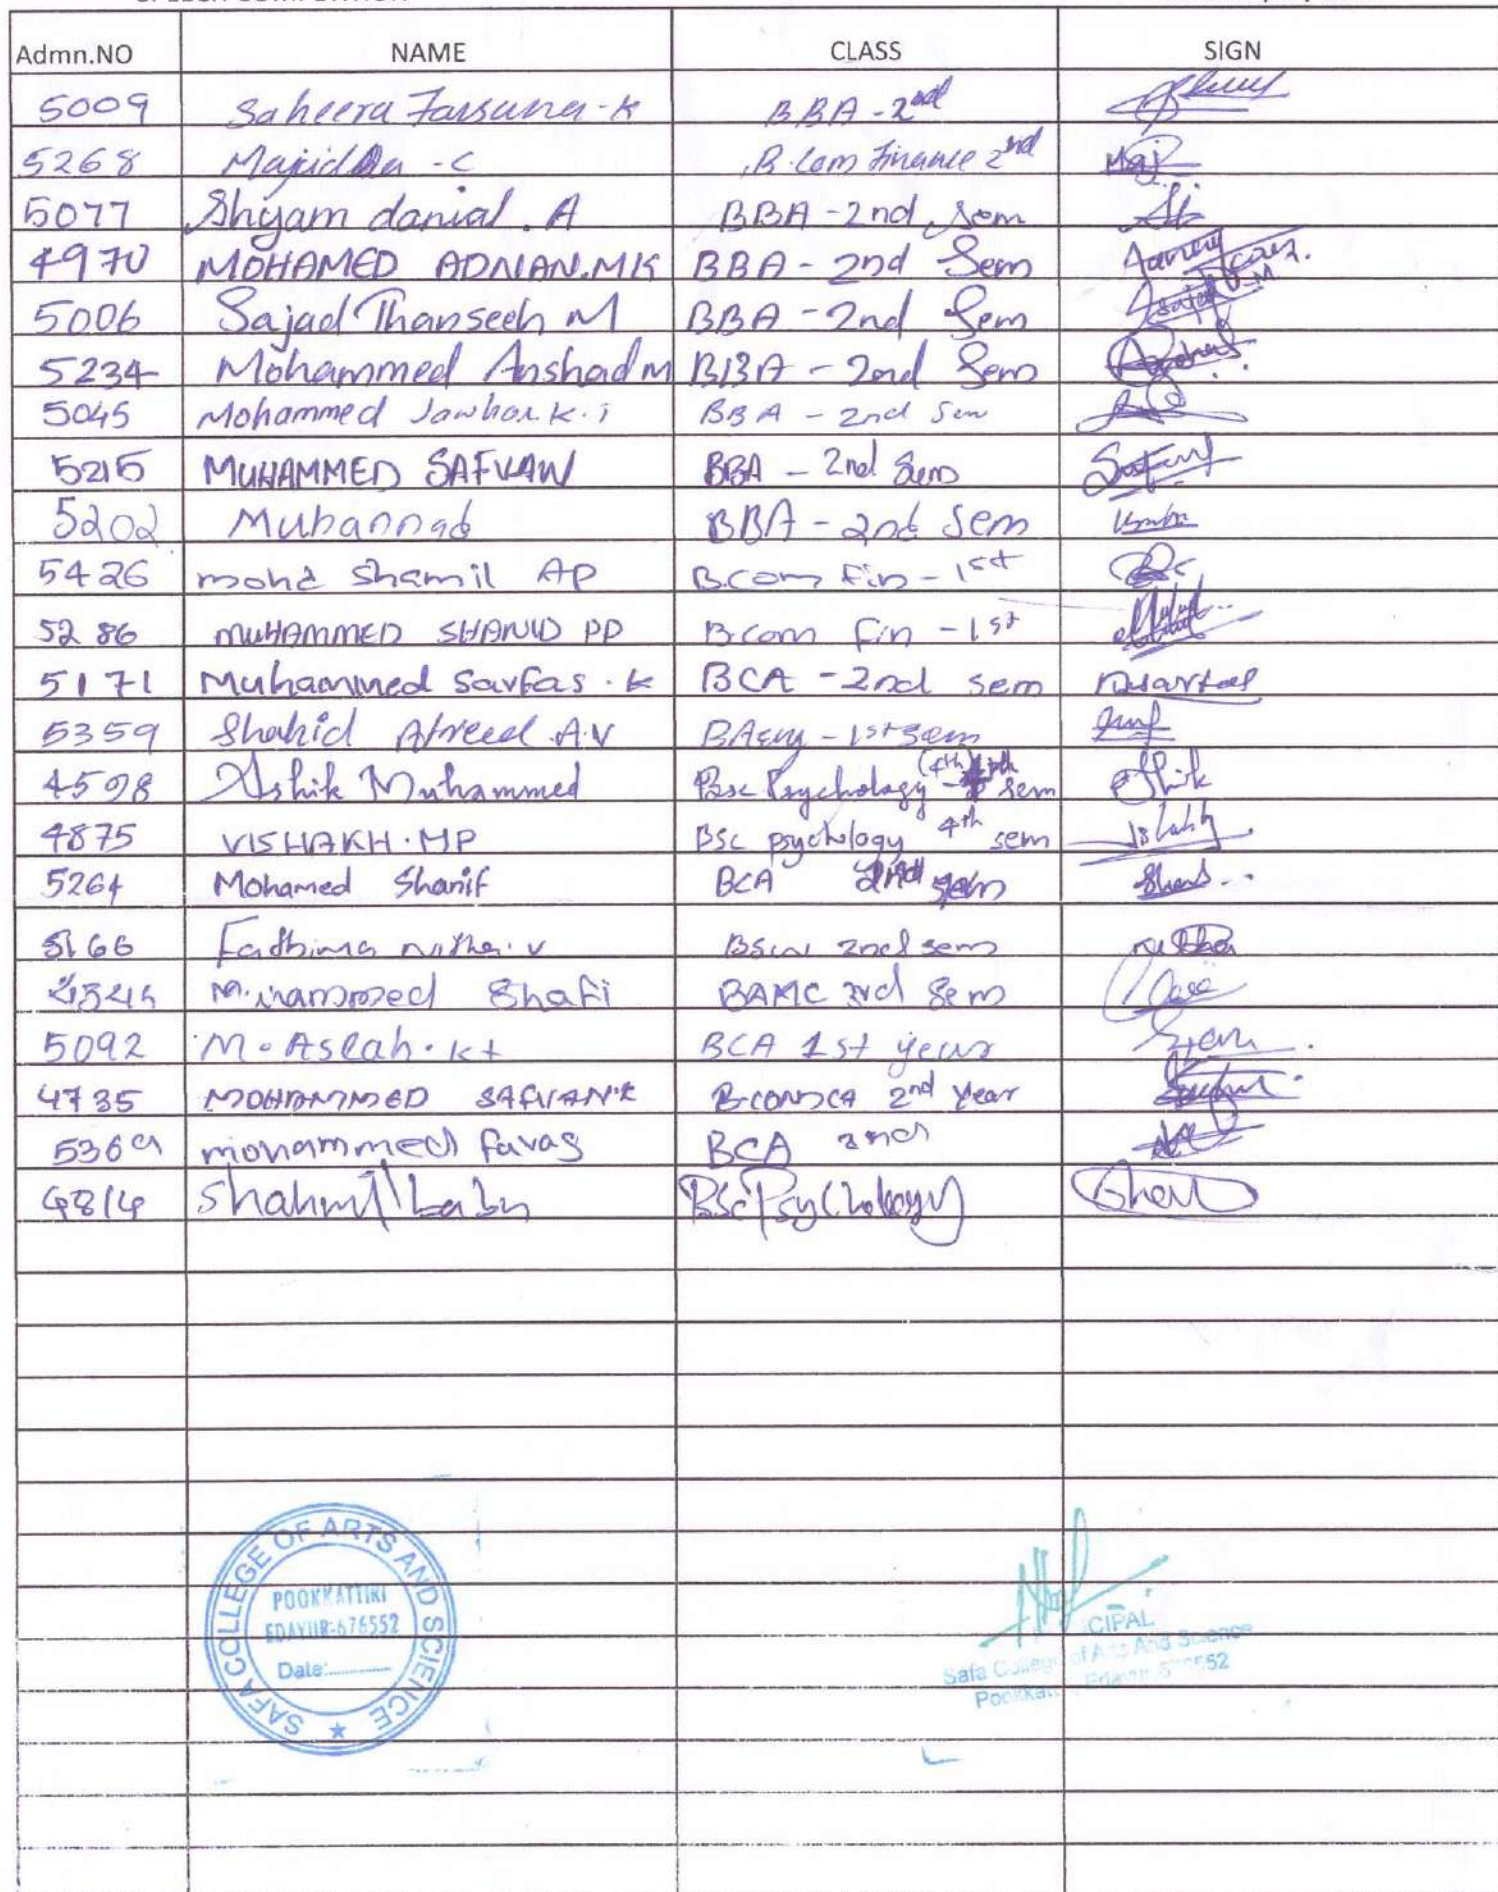 Admn.NO NAME CLASS SIGN
5009 Saheera Farsana - K BBA - 2nd
5268 Majidda - C B.Com Finance 2nd Maj
5077 Shyam danial . A BBA - 2nd Sem
4970 MOHAMED ADNAN.MK BBA - 2nd Sem
5006 Sajad Thanseeh M BBA - 2nd Sem
5234 Mohammed Anshad M BBA - 2nd Sem
5045 Mohammed Jawhar K.i BBA - 2nd Sem
5215 MUHAMMED SAFVAN BBA - 2nd Sem
5202 Muhannad BBA - 2nd Sem
5426 mohd shamil AP B.com Fin - 1st
5286 MUHAMMED SHANID PP B.com Fin - 1st
5171 Muhammed Sarfas . K BCA - 2nd sem
5359 Shahid Afreed .A.V BAeng - 1st sem
4598 Ashik Muhammed Bsc Psychology (4th) sem
4875 VISHAKH.MP BSC psychology 4th sem
5264 Mohamed Shanif BCA 2nd sem
5166 Fathima nitha . v BSW 2nd sem
Shafi BAMC sem
5092 M. Aslah . kt BCA 1st year
4735 MOHAMMED SAFVAN.K B.COM CA 2nd Year
5369 mohammed favas BCA 2nd
4814 Shahmil babu BSc Psychology
SAFA COLLEGE OF ARTS AND SCIENCE
POOKKATTIRI
EDAYUR-676552
Date:
CIPAL
Safa College of Arts And Science